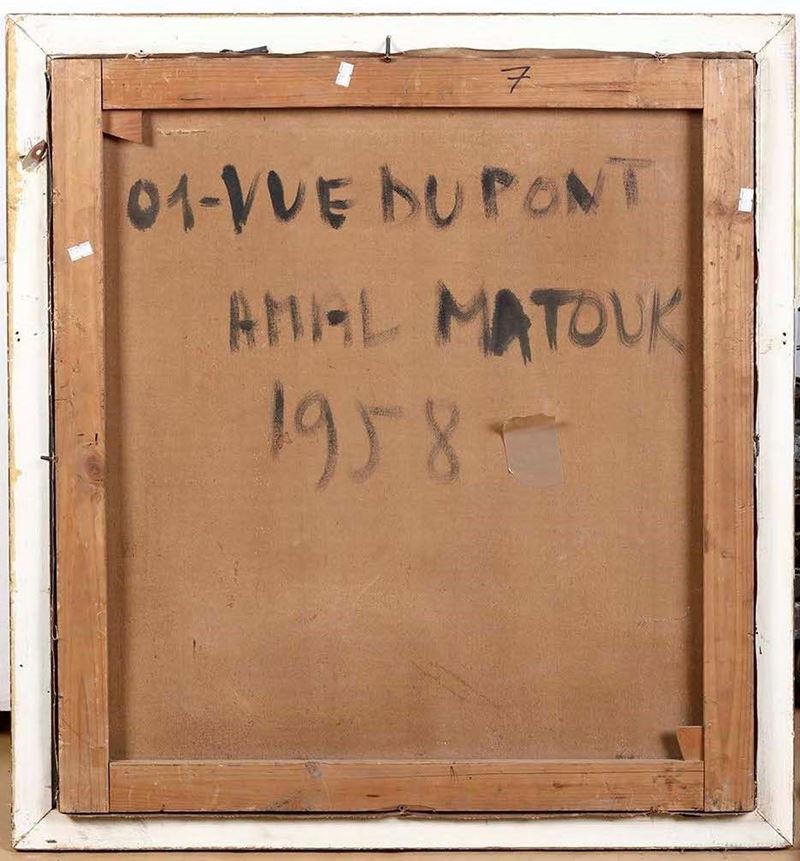 7
01-VUE DU PONT
AMAL MATOUK
1958